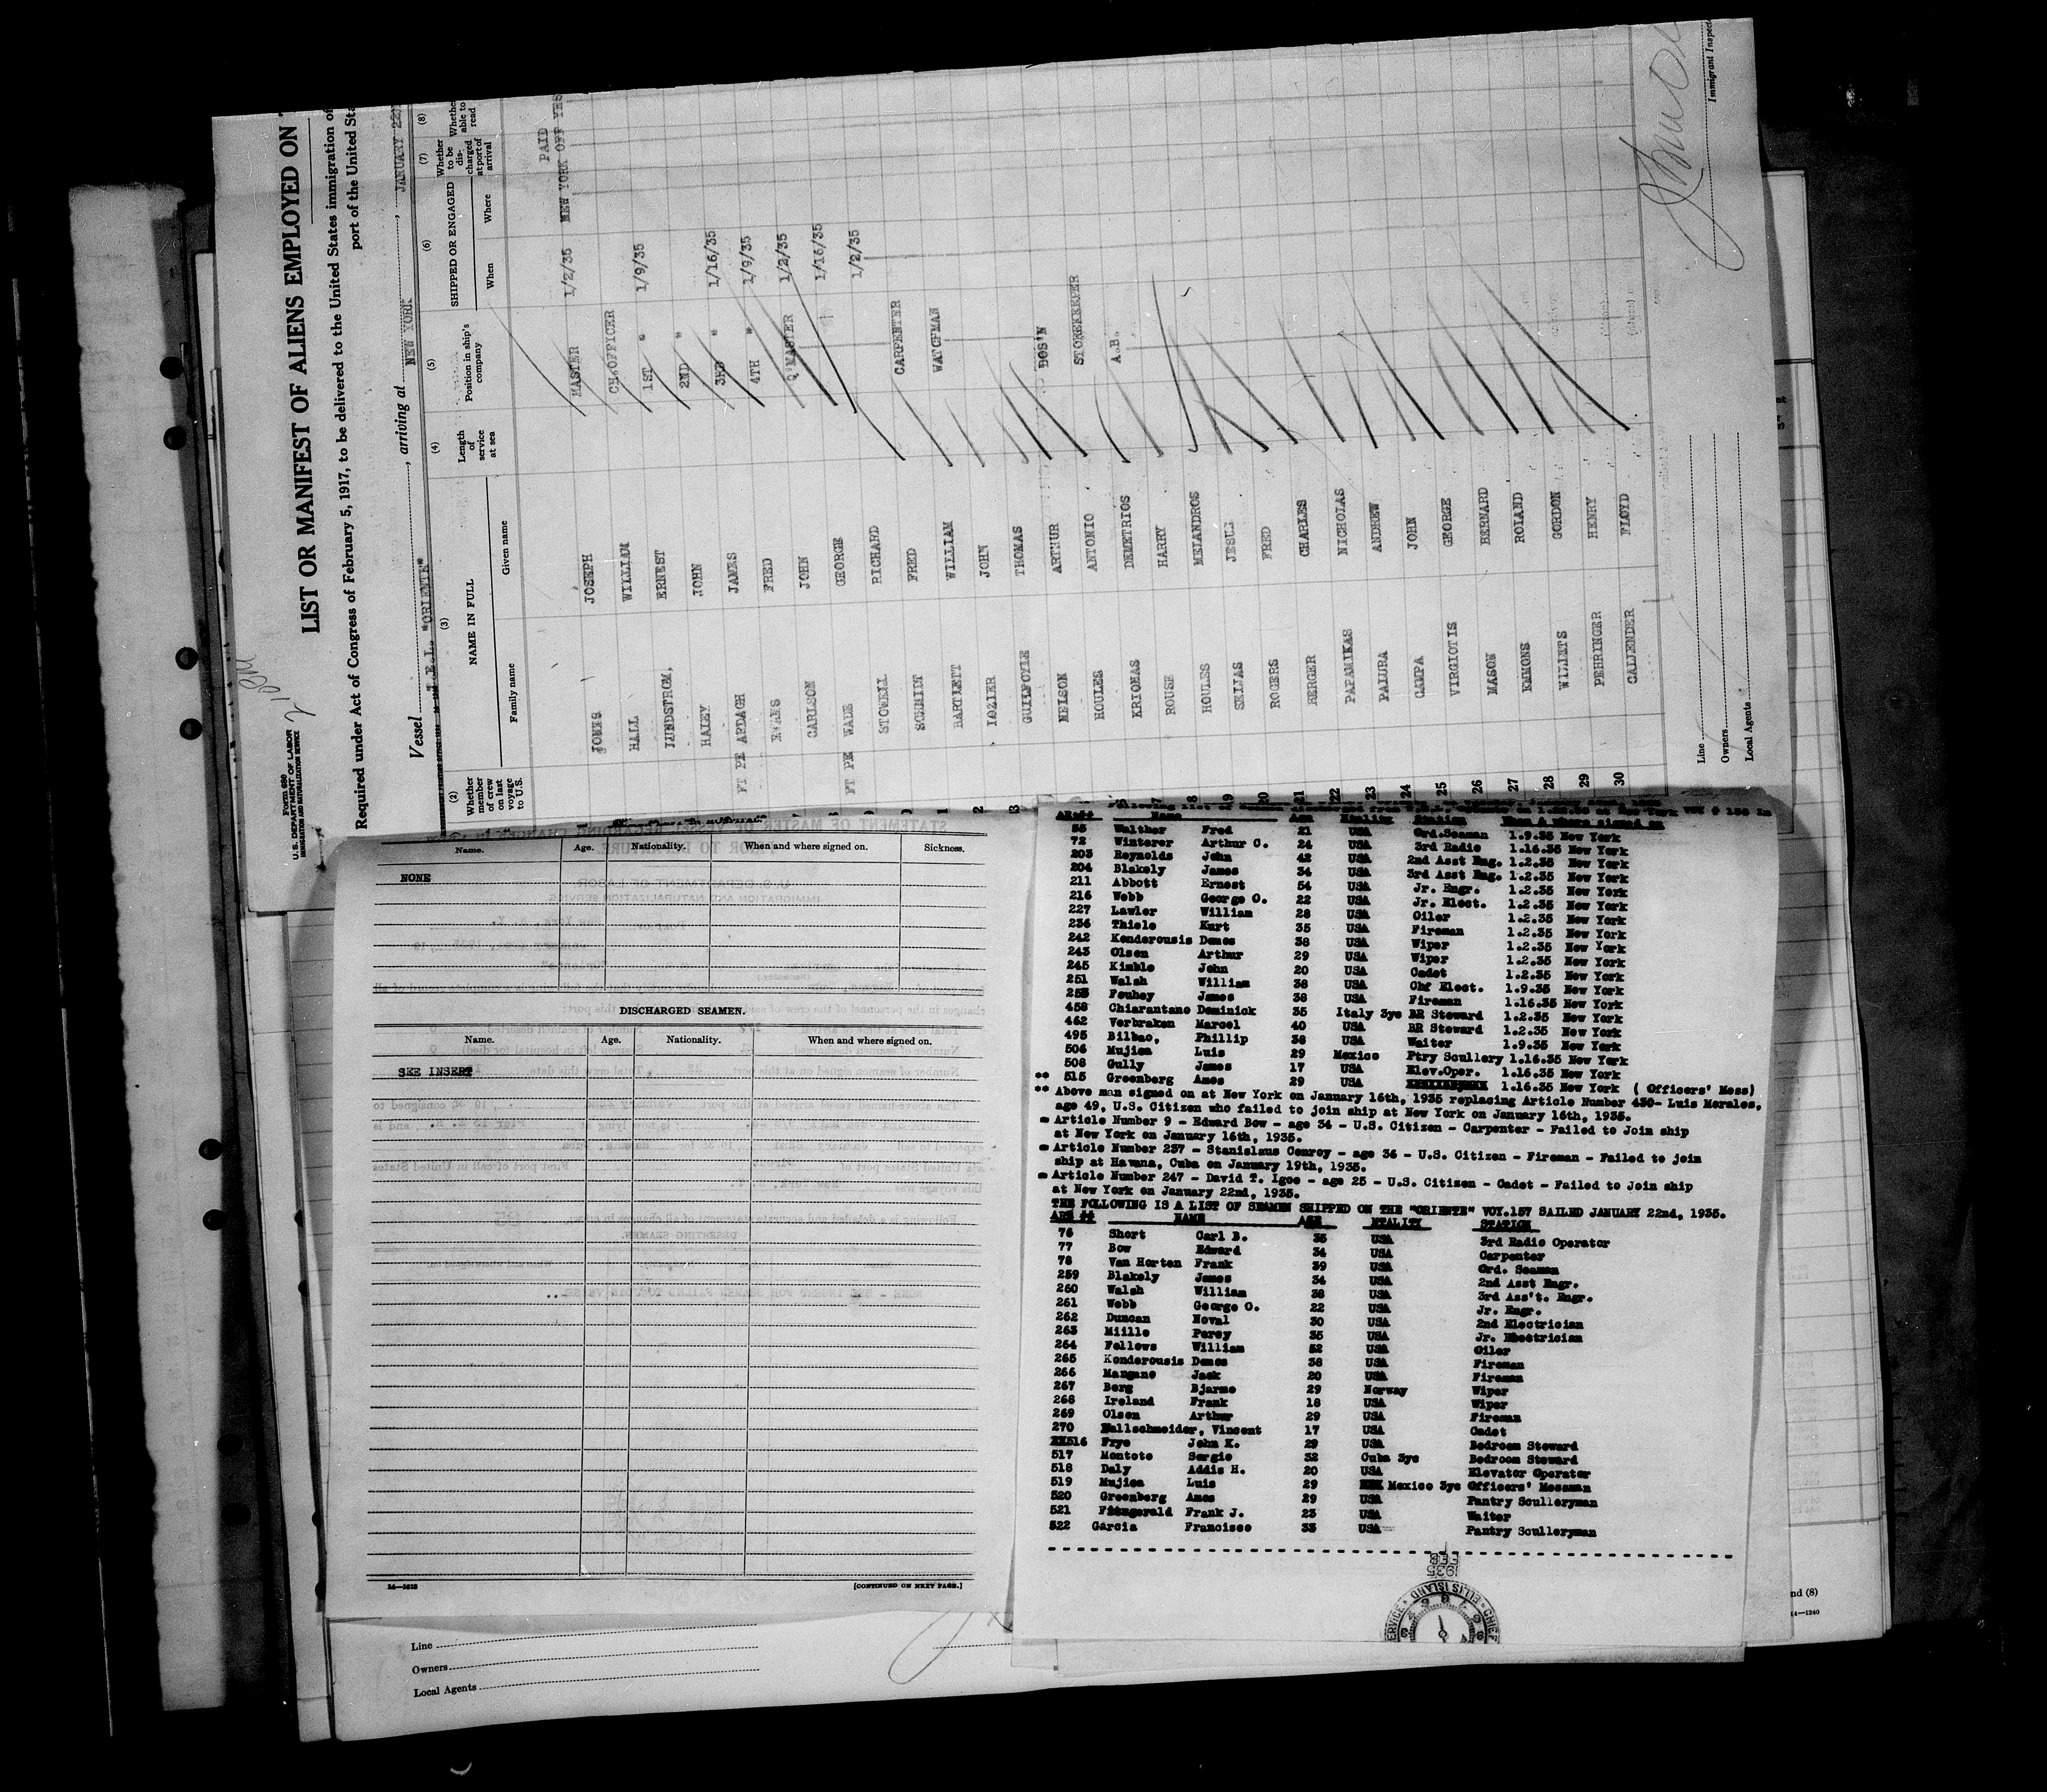 Form 680
U. S. DEPARTMENT OF LABOR
IMMIGRATION AND NATURALIZATION SERVICE
LIST OR MANIFEST OF ALIENS EMPLOYED ON
Required under Act of Congress of February 5, 1917, to be delivered to the United States immigration
port of the United
Vessel "ORIENTE", arriving at NEW YORK, JANUARY
(2) (3) (4) (5) (6) (7) (8)
Whether member of crew on last voyage to U.S.
NAME IN FULL
Family name Given name
Length of service at sea
Position in ship's company
SHIPPED OR ENGAGED
When Where
Whether to be discharged at port of arrival
Whether able to read
PAID
JONES JOSEPH MASTER 1/2/35 NEW YORK OFF YES
HALL WILLIAM CH.OFFICER
LUNDSTROM, ERNEST 1ST " 1/9/35
HALEY JOHN 2ND "
FT PE ARDAGH JAMES 3RD " 1/16/35
EVANS FRED 4TH " 1/9/35
CARLSON JOHN Q'MASTER 1/2/35
FT PE WADE GEORGE 1/16/35
STOWELL RICHARD 1/2/35
SCHMIDT FRED CARPENTER
BARTLETT WILLIAM WATCHMAN
LOZIER JOHN
GUILFOYLE THOMAS
NELSON ARTHUR BOS'N
HOULES ANTONIO STOREKEEPER
KRIONAS DEMETRIOS A.B.
ROUSE HARRY
HOULES MELANDROS
SEIJAS JESUS
ROGERS FRED
21 BERGER CHARLES
22 PAPAMIKAS NICHOLAS
23 PAIURA ANDREW
24 CAMPA JOHN
25 VIRGIOTIS GEORGE
26 MASON BERNARD
27 EMMONS ROLAND
28 WILLETS GORDON
29 PEHRINGER HENRY
30 CALLENDER FLOYD
Line
Owners
Local Agents
Immigrant Inspec
Name. Age. Nationality. When and where signed on. Sickness.
NONE
DISCHARGED SEAMEN.
Name. Age. Nationality. When and where signed on.
SEE INSERT
[CONTINUED ON NEXT PAGE.]
Line
Owners
Local Agents
Name Age Ntality Station When & where signed on
55 Walther Fred 21 USA Ord.Seaman 1.9.35 New York
72 Winterer Arthur C. 24 USA 3rd Radio 1.16.35 New York
203 Reynolds John 42 USA 2nd Asst Eng. 1.2.35 New York
204 Blakely James 34 USA 3rd Asst Eng. 1.2.35 New York
211 Abbott Ernest 54 USA Jr. Engr. 1.2.35 New York
216 Webb George O. 22 USA Jr. Elect. 1.2.35 New York
227 Lawler William 28 USA Oiler 1.2.35 New York
236 Thiele Kurt 35 USA Fireman 1.2.35 New York
242 Konderousis Demos 38 USA Wiper 1.2.35 New York
243 Olsen Arthur 29 USA Wiper 1.2.35 New York
245 Kimble John 20 USA Cadet 1.2.35 New York
251 Walsh William 38 USA Chf Elect. 1.9.35 New York
253 Fouhey James 38 USA Fireman 1.16.35 New York
458 Chiarantano Dominick 35 Italy 3ye BR Steward 1.2.35 New York
462 Verbraken Marcel 40 USA BR Steward 1.2.35 New York
495 Bilbao, Phillip 38 USA Waiter 1.9.35 New York
506 Mujica Luis 29 Mexico Ptry Scullery 1.16.35 New York
508 Gully James 17 USA Elev.Oper. 1.16.35 New York
** 515 Greenberg Amos 29 USA 1.16.35 New York ( Officers' Mess)
** Above man signed on at New York on January 16th, 1935 replacing Article Number 430- Luis Morales,
age 49, U.S. Citizen who failed to join ship at New York on January 16th, 1935.
= Article Number 9 - Edward Bow - age 34 - U.S. Citizen - Carpenter - Failed to Join ship
at New York on January 16th, 1935.
= Article Number 237 - Stanislaus Conroy - age 36 - U.S. Citizen - Fireman - Failed to join
ship at Havana, Cuba on January 19th, 1935.
= Article Number 247 - David T. Igoe - age 25 - U.S. Citizen - Cadet - Failed to Join ship
at New York on January 22nd, 1935.
THE FOLLOWING IS A LIST OF SEAMEN SHIPPED ON THE "ORIENTE" VOY.157 SAILED JANUARY 22nd, 1935.
ART ## NAME AGE NTALITY STATION
76 Short Carl B. 35 USA 3rd Radio Operator
77 Bow Edward 34 USA Carpenter
78 Van Horten Frank 39 USA Ord. Seaman
259 Blakely James 34 USA 2nd Asst Engr.
260 Walsh William 38 USA 3rd Ass't. Engr.
261 Webb George O. 22 USA Jr. Engr.
262 Duncan Noval 30 USA 2nd Electrician
263 Miille Percy 35 USA Jr. Electrician
264 Fellows William 52 USA Oiler
265 Konderousis Demos 38 USA Fireman
266 Mangano Jack 20 USA Fireman
267 Berg Bjarne 29 Norway Wiper
268 Ireland Frank 18 USA Wiper
269 Olsen Arthur 29 USA Fireman
270 Hallschneider, Vincent 17 USA Cadet
516 Frye John K. 29 USA Bedroom Steward
517 Montoto Sergio 32 Cuba 3ye Bedroom Steward
518 Daly Addis H. 20 USA Elevator Operator
519 Mujica Luis 29 Mexico 3ye Officers' Messman
520 Greenberg Amos 29 USA Pantry Sculleryman
521 Fitzgerald Frank J. 23 USA Waiter
522 Garcia Francisco 33 USA Pantry Sculleryman
FEB
1935
ELLIS ISLAND
CHIEF
nd (8)
14—1240